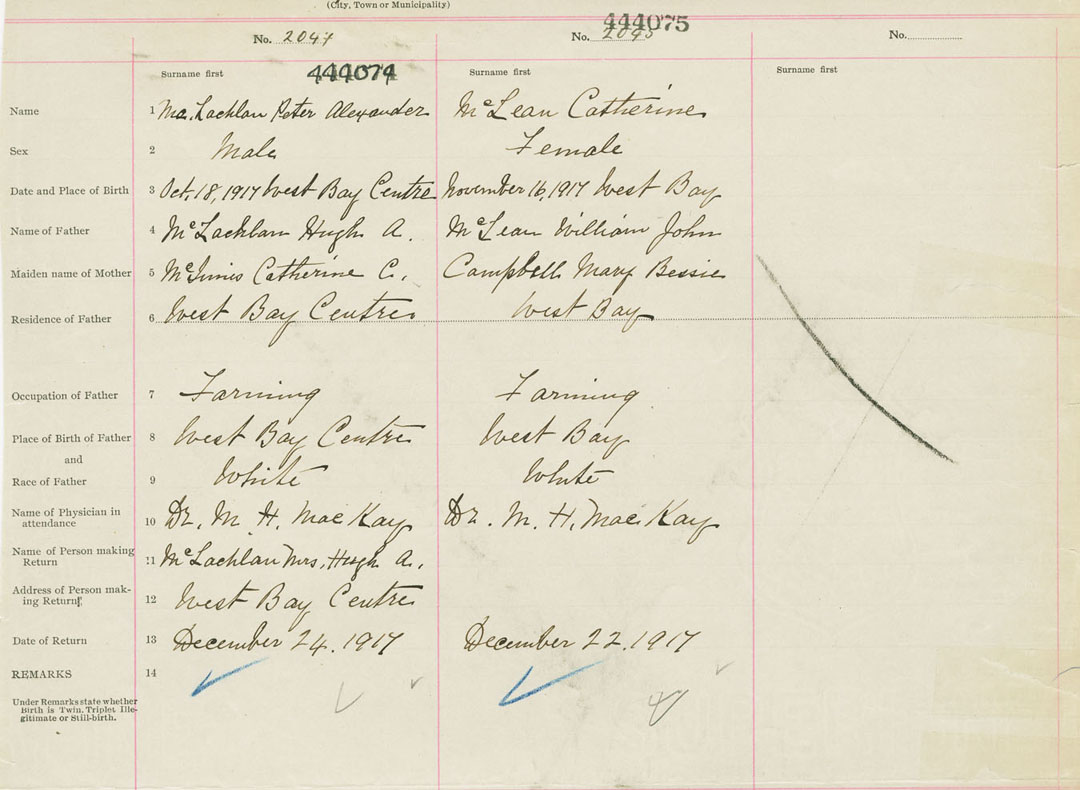 (City, Town or Municipality)
444075
No. 2047 No. 2045 No.
Surname first 444074 Surname first Surname first
Name 1 Mac Lachlan Peter Alexander McLean Catherine
Sex 2 Male Female
Date and Place of Birth 3 Oct. 18, 1917 West Bay Centre November 16, 1917 West Bay
Name of Father 4 McLachlan Hugh A. McLean William John
Maiden name of Mother 5 McInnis Catherine C. Campbell Mary Bessie
Residence of Father 6 West Bay Centre West Bay
Occupation of Father 7 Farming Farming
Place of Birth of Father 8 West Bay Centre West Bay
and
Race of Father 9 White White
Name of Physician in
attendance 10 Dr. M. H. MacKay Dr. M. H. MacKay
Name of Person making
Return 11 McLachlan Mrs. Hugh A.
Address of Person mak-
ing Return 12 West Bay Centre
Date of Return 13 December 24, 1917 December 22, 1917
REMARKS 14
Under Remarks state whether
Birth is Twin. Triplet Ille-
gitimate or Still-birth.